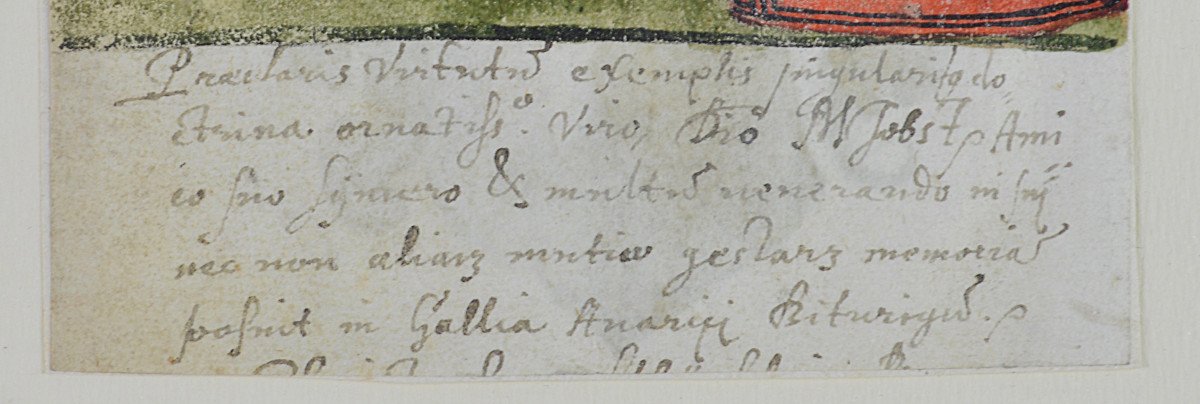 Præclaris Virtutū exemplis singulariq̃ do=
ctrina ornatisso. Viro, Dño M Jobst, Ami
co suo syncero & multū uenerando in sui
nec non aliarꝫ mutuo gestarꝫ memoriā
posuit in Gallia Auarici Biturigū.